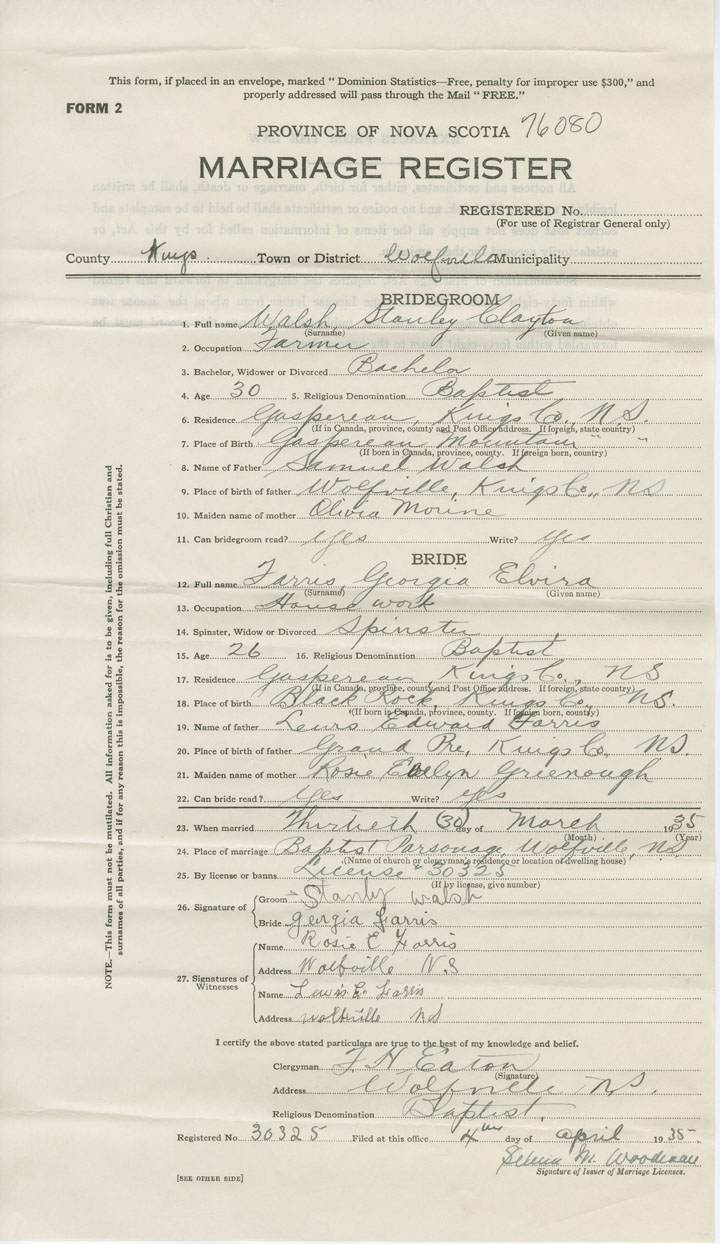 This form, if placed in an envelope, marked " Dominion Statistics—Free, penalty for improper use $300," and
properly addressed will pass through the Mail " FREE."
FORM 2
PROVINCE OF NOVA SCOTIA 76080
MARRIAGE REGISTER
REGISTERED No.
(For use of Registrar General only)
County Kings Town or District Wolfville Municipality
BRIDEGROOM
1. Full name Walsh, Stanley Clayton
(Surname) (Given name)
2. Occupation Farmer
3. Bachelor, Widower or Divorced Bachelor
4. Age 30 5. Religious Denomination Baptist
6. Residence Gaspereau, Kings Co., N.S.
(If in Canada, province, county and Post Office address. If foreign, state country)
7. Place of Birth Gaspereau Mountain " "
(If born in Canada, province, county. If foreign born, country)
8. Name of Father Samuel Walsh
9. Place of birth of father Wolfville, Kings Co., NS
10. Maiden name of mother Olivia Mourne
11. Can bridegroom read? yes Write? yes
BRIDE
12. Full name Farris, Georgia Elvira
(Surname) (Given name)
13. Occupation House work
14. Spinster, Widow or Divorced Spinster
15. Age 26 16. Religious Denomination Baptist
17. Residence Gaspereau, Kings Co., NS
(If in Canada, province, county and Post Office address. If foreign, state country)
18. Place of birth Black Rock, Kings Co., NS.
(If born in Canada, province, county. If foreign born, country)
19. Name of father Lewis Edward Farris
20. Place of birth of father Grand Pre, Kings Co. NS.
21. Maiden name of mother Rosie Evelyn Greenough
22. Can bride read? yes Write? yes
23. When married Thirtieth (30) day of March 1935
(Month) (Year)
24. Place of marriage Baptist Parsonage, Wolfville, NS
(Name of church or clergyman's residence or location of dwelling house)
25. By license or banns License # 30325
(If by license, give number)
26. Signature of
Groom Stanly walsh
Bride georgia Farris
27. Signatures of Witnesses
Name Rosie E Farris
Address Wolfville N.S
Name Lewis E. Farris
Address wolfville NS
I certify the above stated particulars are true to the best of my knowledge and belief.
Clergyman F H Eaton
(Signature)
Address Wolfville NS.
Religious Denomination Baptist.
Registered No. 30325 Filed at this office 4th day of april 1935
M. Woodman
Signature of Issuer of Marriage Licenses.
[SEE OTHER SIDE]
NOTE.—This form must not be mutilated. All information asked for is to be given, including full Christian and
surnames of all parties, and if for any reason this is impossible, the reason for the omission must be stated.